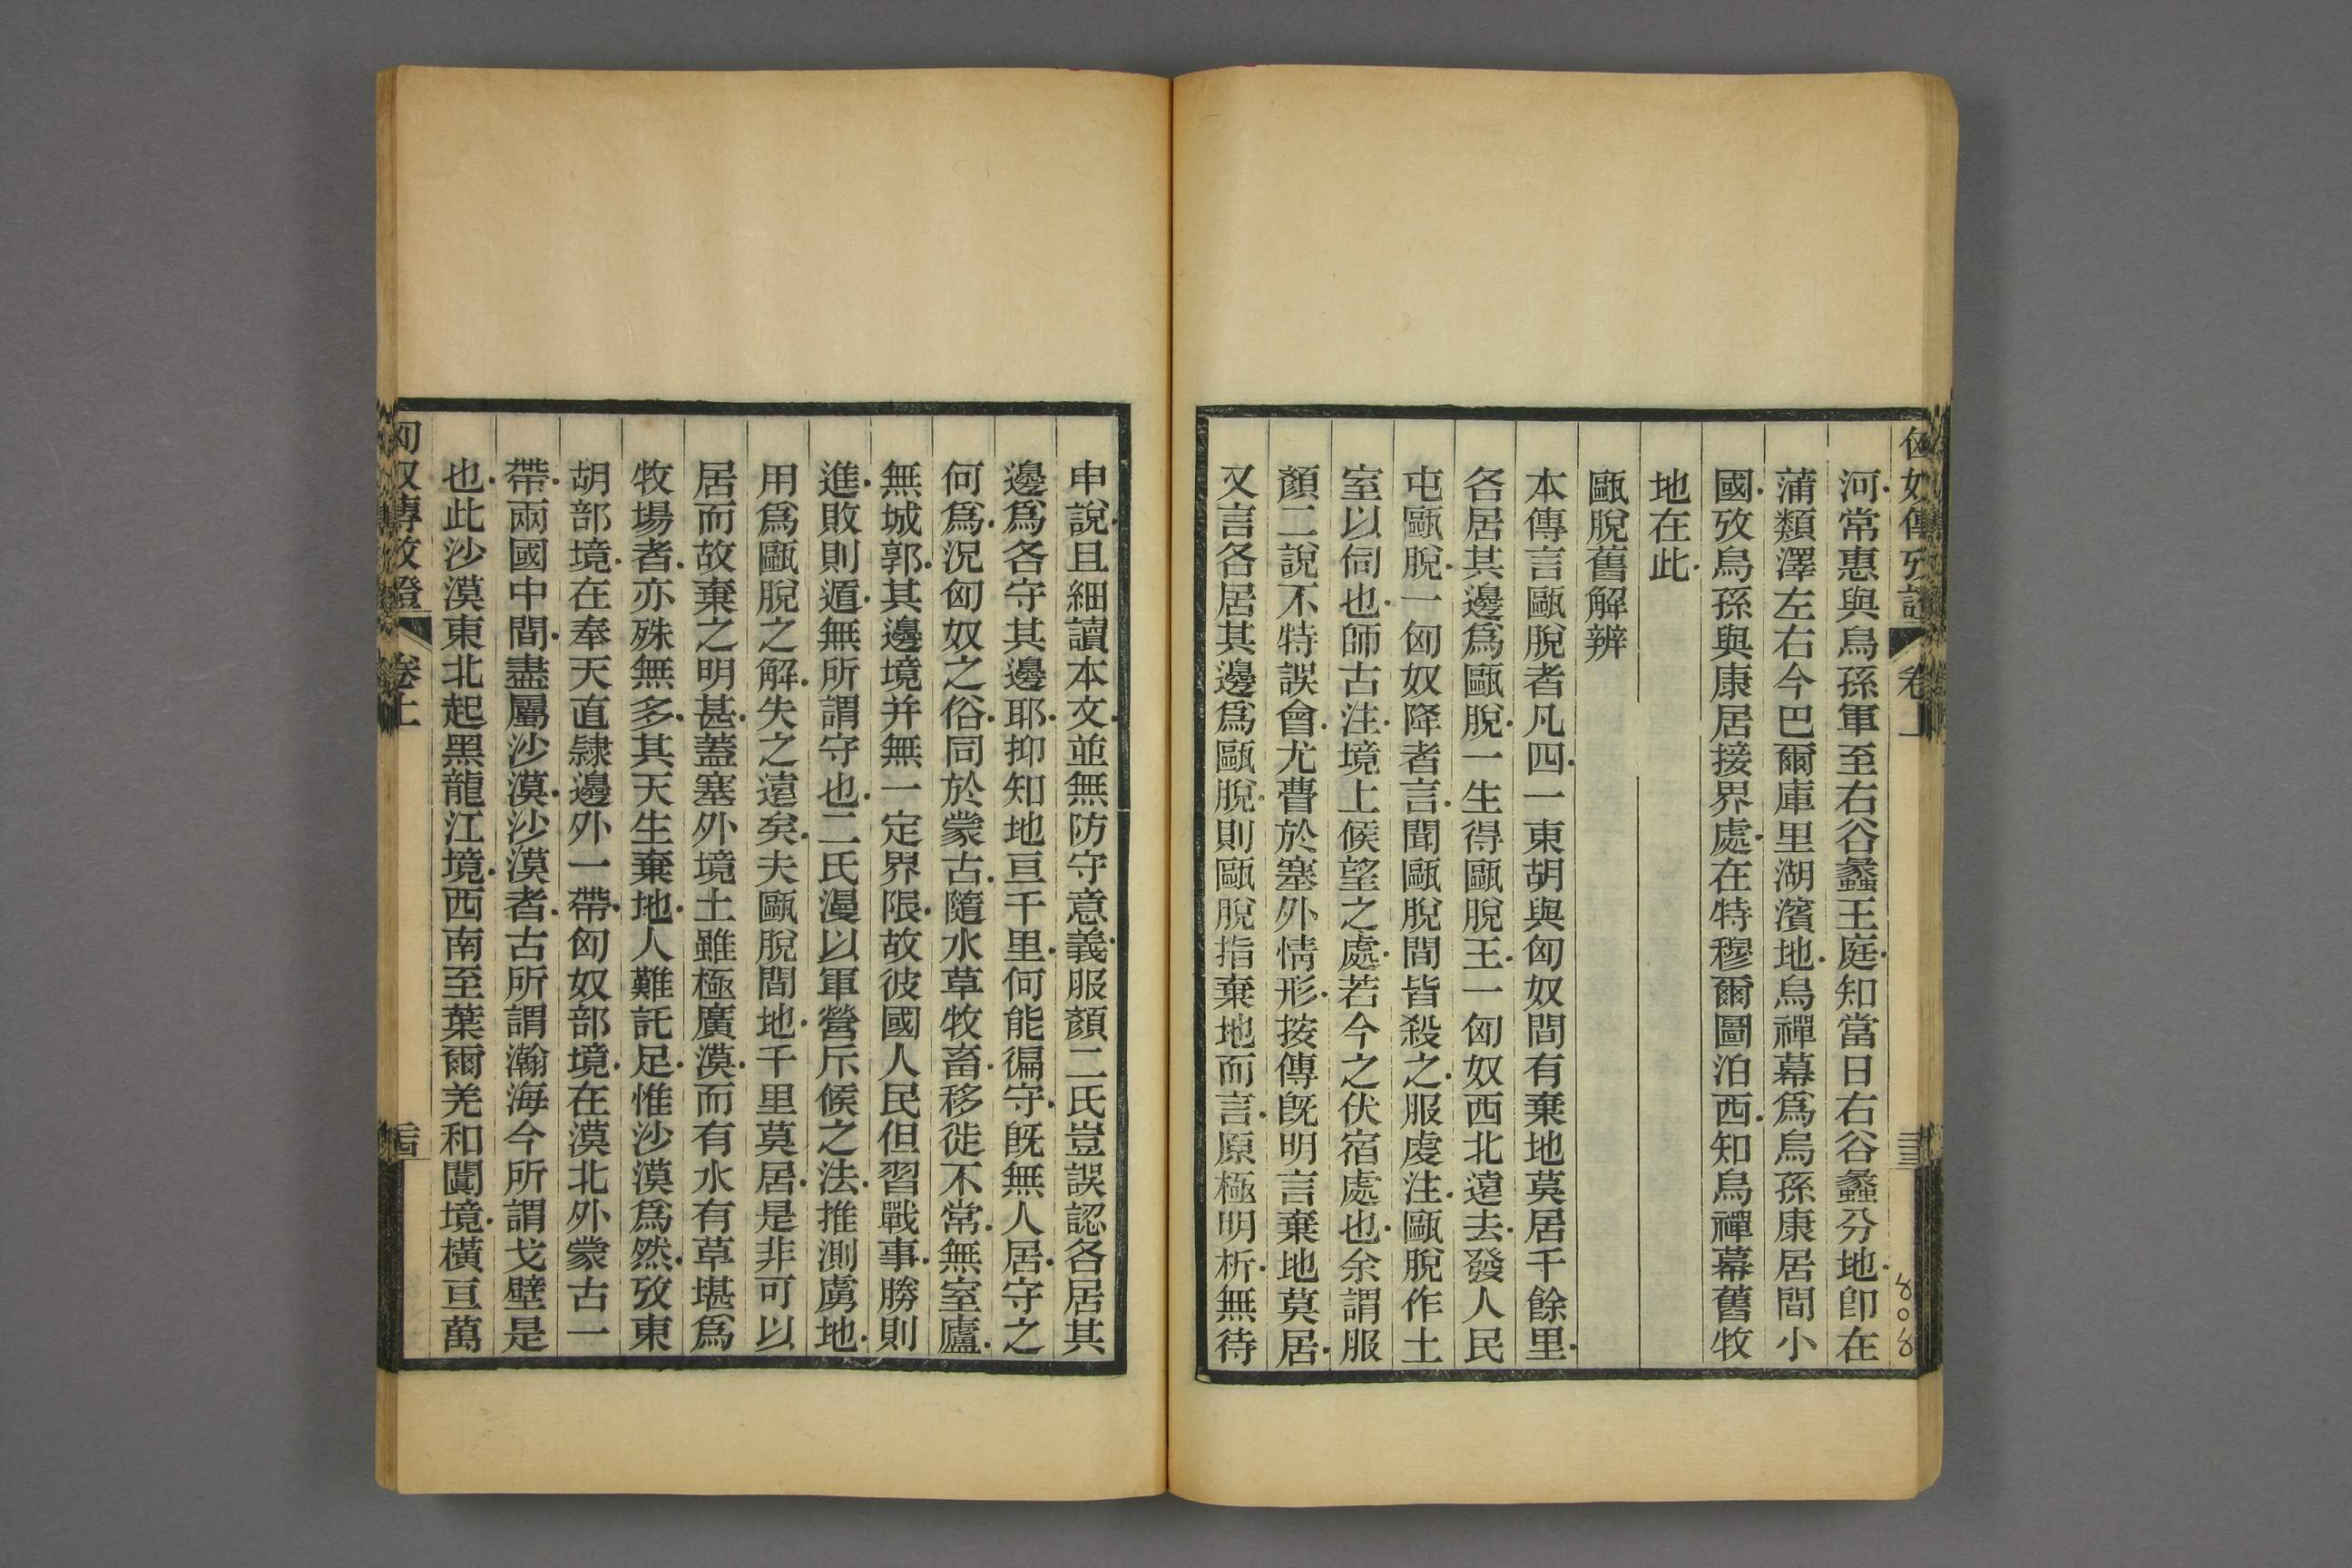 匈奴傳攷證 卷上
河常惠與烏孫軍至右谷蠡王庭知當日右谷蠡分地卽在
蒲類澤左右今巴爾庫里湖濱地烏禪幕爲烏孫康居間小
國攷烏孫與康居接界處在特穆爾圖泊西知烏禪幕舊牧
地在此
甌脫舊解辨
本傳言甌脫者凡四一東胡與匈奴間有棄地莫居千餘里
各居其邊爲甌脫一生得甌脫王一匈奴西北遠去發人民
屯甌脫一匈奴降者言聞甌脫間皆殺之服虔注甌脫作土
室以伺也師古注境上候望之處若今之伏宿處也余謂服
顏二說不特誤會尤瞢於塞外情形按傳旣明言棄地莫居
又言各居其邊爲甌脫則甌脫指棄地而言原極明析無待
申說且細讀本文並無防守意義服顏二氏豈誤認各居其
邊爲各守其邊耶抑知地亘千里何能徧守旣無人居守之
何爲況匈奴之俗同於蒙古隨水草牧畜移徙不常無室廬
無城郭其邊境并無一定界限故彼國人民但習戰事勝則
進敗則遁無所謂守也二氏漫以軍營斥候之法推測虜地
用爲甌脫之解失之遠矣夫甌脫間地千里莫居是非可以
居而故棄之明甚蓋塞外境土雖極廣漠而有水有草堪爲
牧場者亦殊無多其天生棄地人難託足惟沙漠爲然攷東
胡部境在奉天直隸邊外一帶匈奴部境在漠北外蒙古一
帶兩國中間盡屬沙漠沙漠者古所謂瀚海今所謂戈壁是
也此沙漠東北起黑龍江境西南至葉爾羌和闐境橫亘萬
匈奴傳攷證 卷上